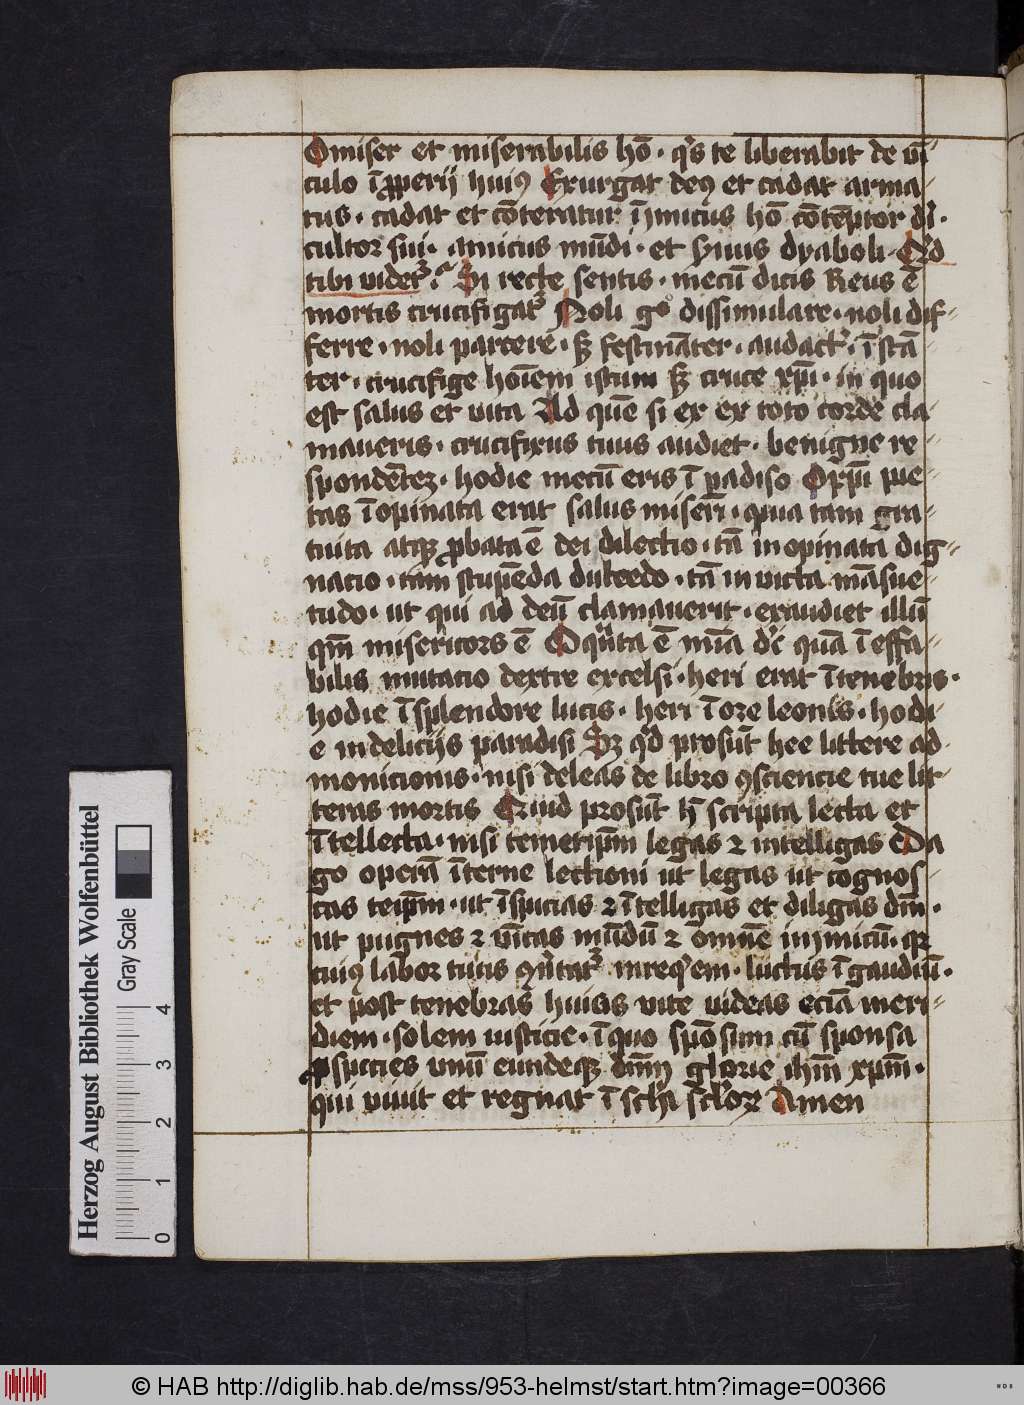 O miser et miserabilis hō · q's te liberabit de vī-
culo īp̱perij huiꝰ Exurgat deꝰ et cadat arma-
tus · cadat et cōteratur īimicus hō cōtēptor dī ·
cultor sui · amicus mūdi · et dyaboli · Qd
tibi videt? Si recte sentis · mecū dicis Reus ē
mortis crucifigat Noli gͦ dissimulare · noli dif-
ferre · noli parcere · sꝫ festināter · audact' · īstā
ter · crucifige hoīem istum sꝫ cruce xp̄i · in quo
est salus et vita Ad quē si ex ex toto corde cla
maueris · crucifixus tuus audiet · benigne re-
spondētez · hodie mecū eris ī padiso O xp̄i pie-
tas īopinata erat salus miseri · quia tam gra-
tuita atqꝫ ꝓbata ē dei dilectio · tā inopinata dig-
nacio · tam stupēda dulcedo · tā invicta māsue-
tudo · ut qui ad deū clamauerit · exaudiet illū
qm̄ misericors ē O q̄nta ē mīa dī quā īeffa-
bilis mutacio dextre excelsi · heri erat ītenebris ·
hodie īsplendore lucis · heri ī ore leonis · hodi-
e in delicijs paradisi Sꝫ qd prosūt hee littere ad-
monicionis · nisi deleas de libro ꝯsciencie tue lit-
teras mortis Quid prosūt h̄ scripta lecta et
ītellecta · nisi temetip̄m legas ⁊ intelligas Da
gͦ operā īterne lectioni ut legas ut cognos-
cas teip̄m · ut īspicias ⁊ ītelligas et diligas dm̄ ·
ut pugnes ⁊ vīcas mūdū ⁊ omnē inimicū · qr
tuiꝰ labor tuus ꝯv̄tat in req'em · luctus ī gaudiū ·
et post tenebras huius vite videas eciā meri-
diem · solem iusticie · ī quo spōsum cū sponsa
ꝓspicies unū eundeqꝫ dn̄m glorie ihm̄ xpm̄ ·
qui viuit et regnat ī sc̄la sc̄lorꝫ Amen
Herzog August Bibliothek Wolfenbüttel
Gray Scale
0 1 2 3 4
© HAB http://diglib.hab.de/mss/953-helmst/start.htm?image=00366